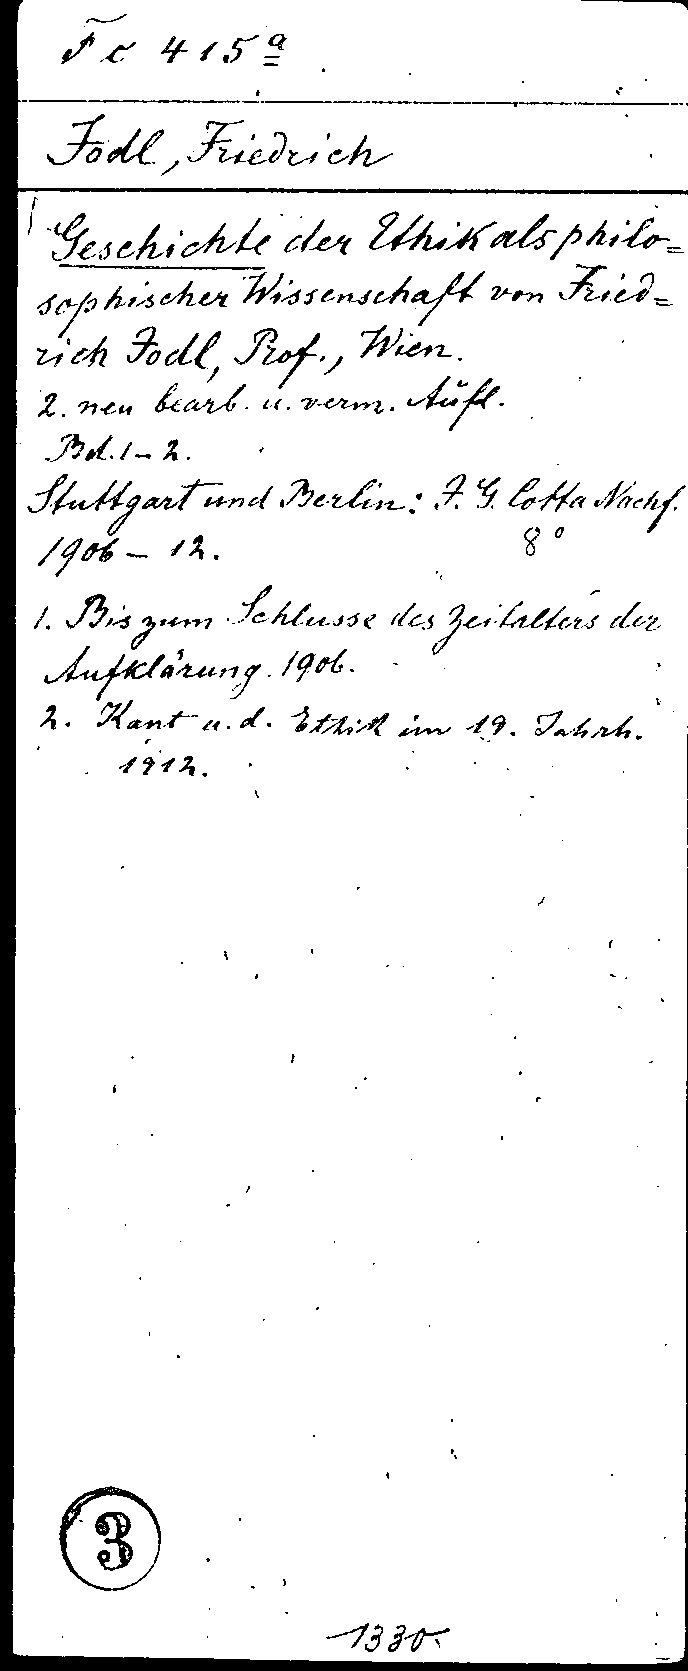 Fc 415 a
Jodl, Friedrich
Geschichte der Ethik als philo=
sophischer Wissenschaft von Fried=
rich Jodl, Prof., Wien.
2. neu bearb. u. verm. Aufl.
Bd. 1-2.
Stuttgart und Berlin: J. G. Cotta Nachf.
1906-12. 8°
1. Bis zum Schlusse des Zeitalters der
Aufklärung. 1906.
2. Kant u. d. Ethik im 19. Jahrh.
1912.
3
1330.